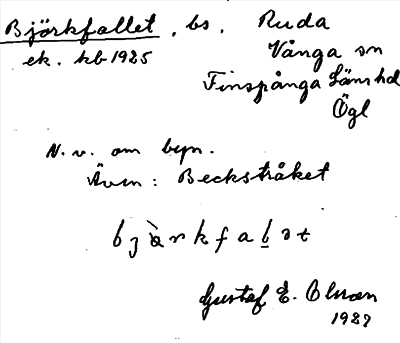 Björkfallet, bs. Ruda
ek. kb 1925 Vånga sn
Finspånga läns hd
Ögl
N. v. om byn.
Även: Beckstråket
Gustaf E. Olsson
1927